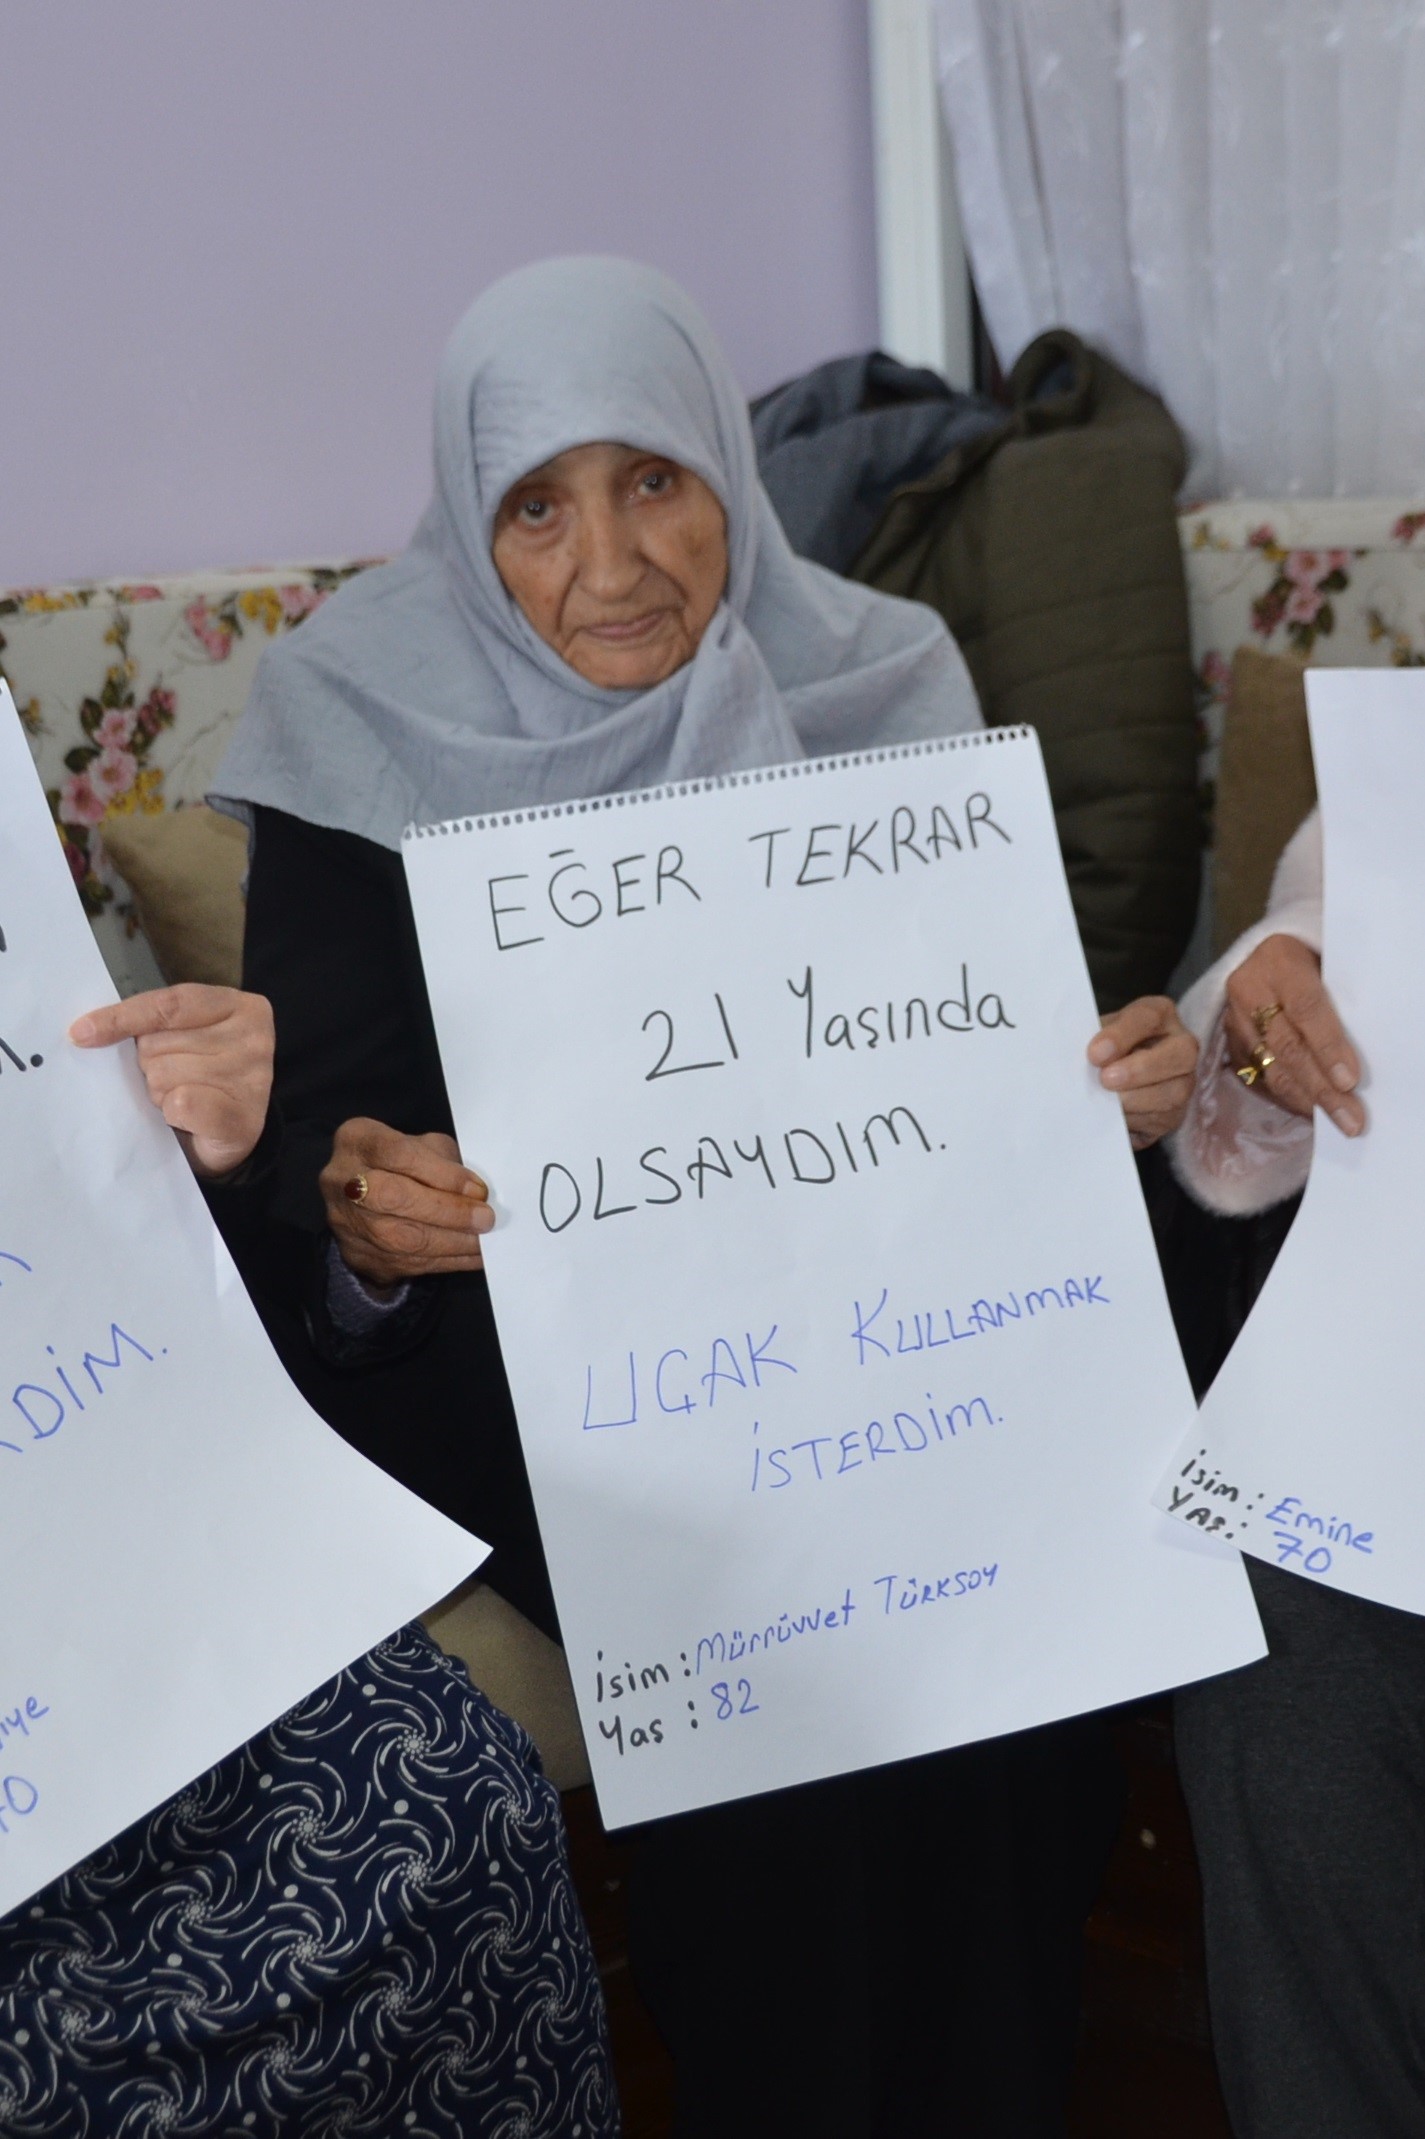 EĞER TEKRAR
21 Yaşında
OLSAYDIM.
UÇAK KULLANMAK
İSTERDİM.
İsim : Mürrüvvet TÜRKSOY
Yas : 82
isim : Emine
YAŞ : 70